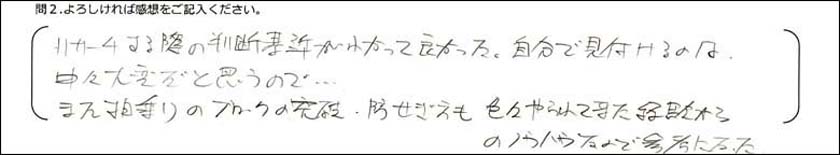 問2.よろしければ感想をご記入ください。
リサーチする際の判断基準がわかって良かった。自分で見付けるのは、
中々大変だと思うので…
また相乗りのブロックの突破、防せぎ方も色々やられて来た経験から
のノウハウなので参考になった